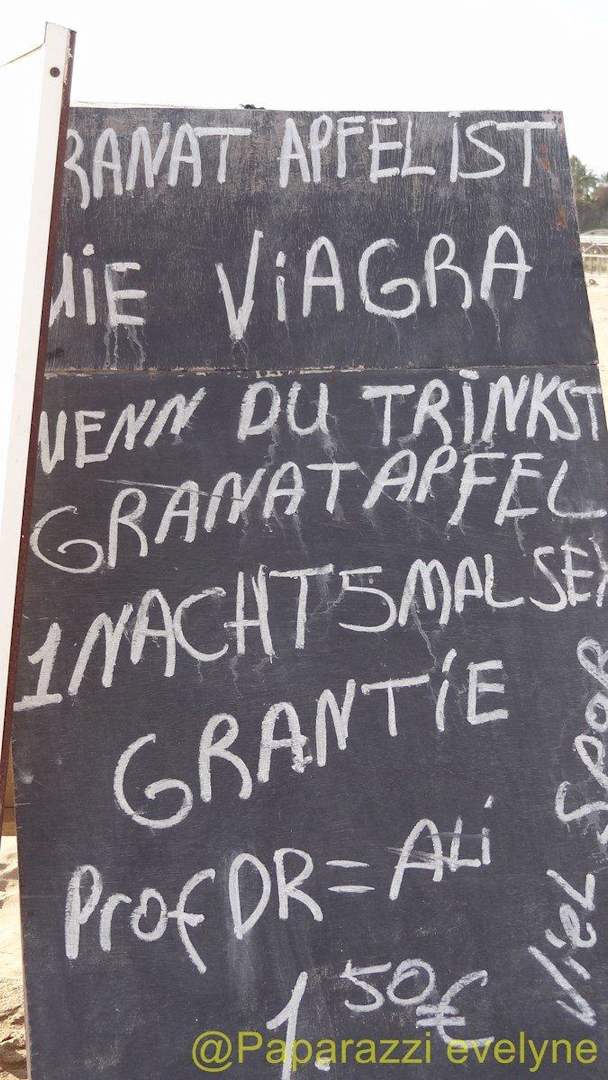 RANAT APFEL iST
WiE ViAGRA
WENN DU TRiNKST
GRANATAPFEL
1 NACHT 5 MAL SEX
GRANTiE
Prof DR = ALi
1.50 €
Viel SpaR
@Paparazzi evelyne